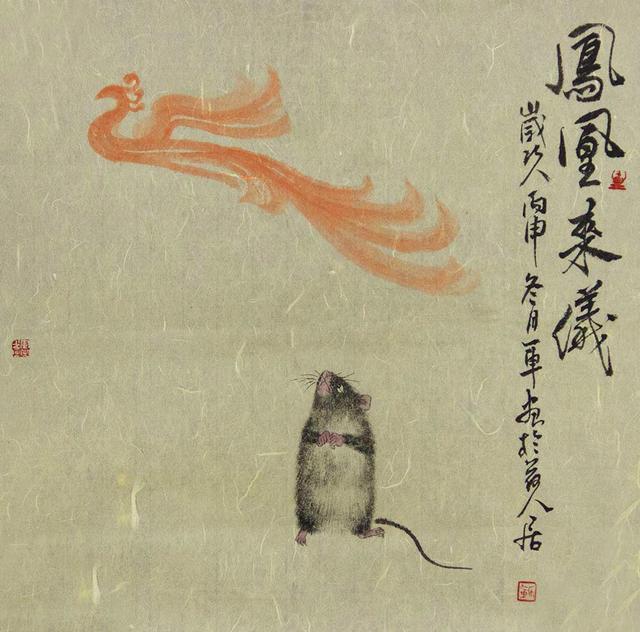 鳳凰來儀
歲次丙申冬月軍畫於人居